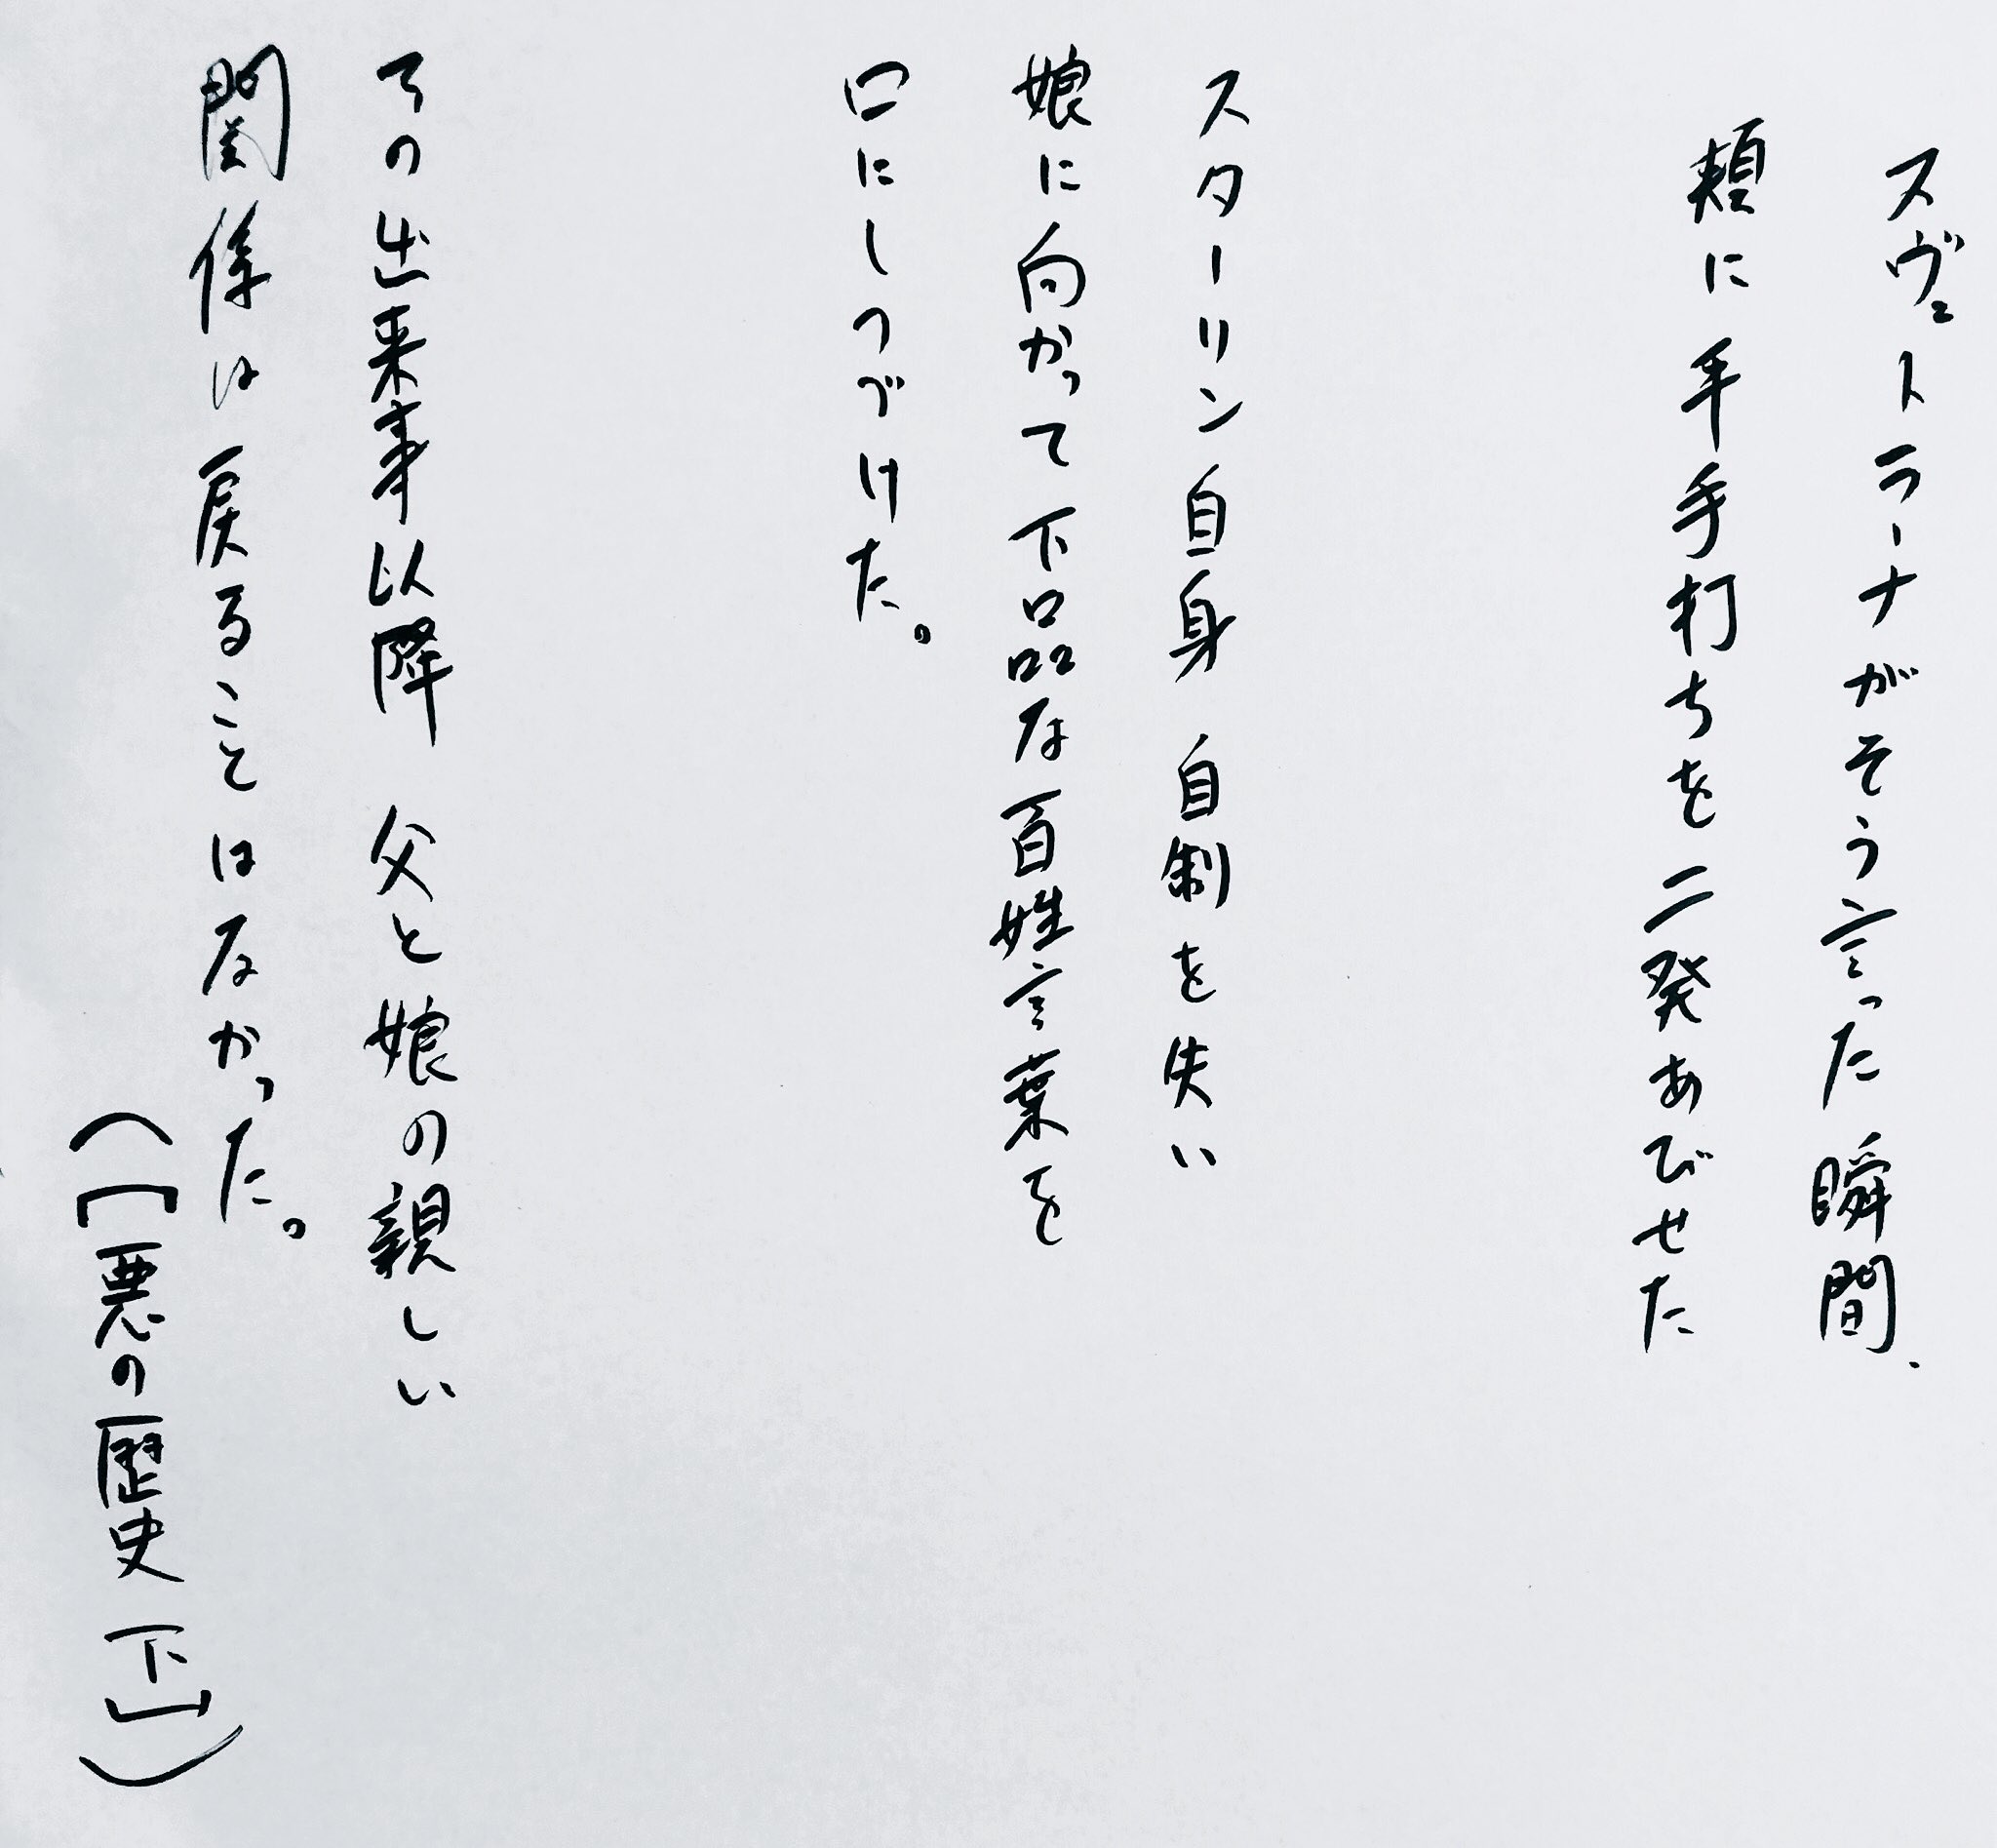 スヴェトラーナがそう言った瞬間、
頬に平手打ちを二発あびせた
スターリン自身 自制を失い
娘に向かって下品な百姓言葉を
口にしつづけた。
その出来事以降 父と娘の親しい
関係は戻ることはなかった。
(「悪の歴史 下」)